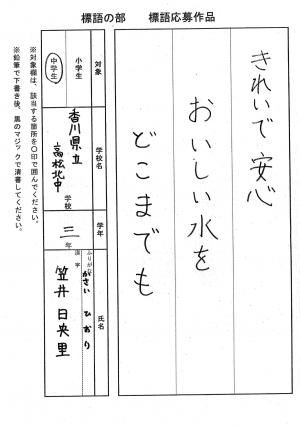 標語の部　標語応募作品
きれいで安心
おいしい水を
どこまでも
対象
小学生
中学生
学校名
香川県立
高松北中
学校
学年
三
年
氏名
ふりがな
かさい　ひおり
漢字
笠井　日央里
※対象欄は、該当する箇所を〇印で囲んでください。
※鉛筆で下書き後、黒のマジックで清書してください。